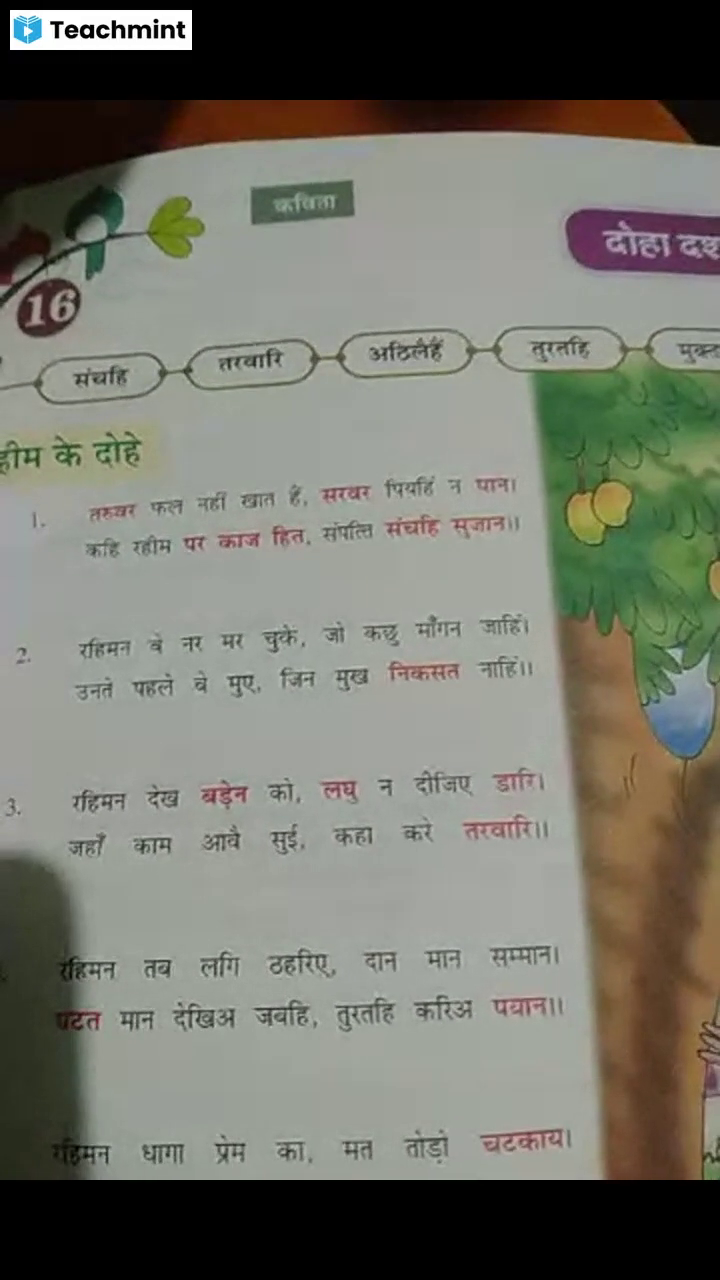 Teachmint
कविता
दोहा दश
16
संचहि तरवारि अठिलैहैं तुरतहि मुक्त
हीम के दोहे
1. तरुवर फल नहीं खात हैं, सरवर पियहिं न पान।
कहि रहीम पर काज हित, संपत्ति संचहि सुजान।।
2. रहिमन वे नर मर चुके, जो कछु माँगन जाहिं।
उनते पहले वे मुए, जिन मुख निकसत नाहिं।।
3. रहिमन देख बड़ेन को, लघु न दीजिए डारि।
जहाँ काम आवै सुई, कहा करे तरवारि।।
रहिमन तब लगि ठहरिए, दान मान सम्मान।
घटत मान देखिअ जबहि, तुरतहि करिअ पयान।।
रहिमन धागा प्रेम का, मत तोड़ो चटकाय।